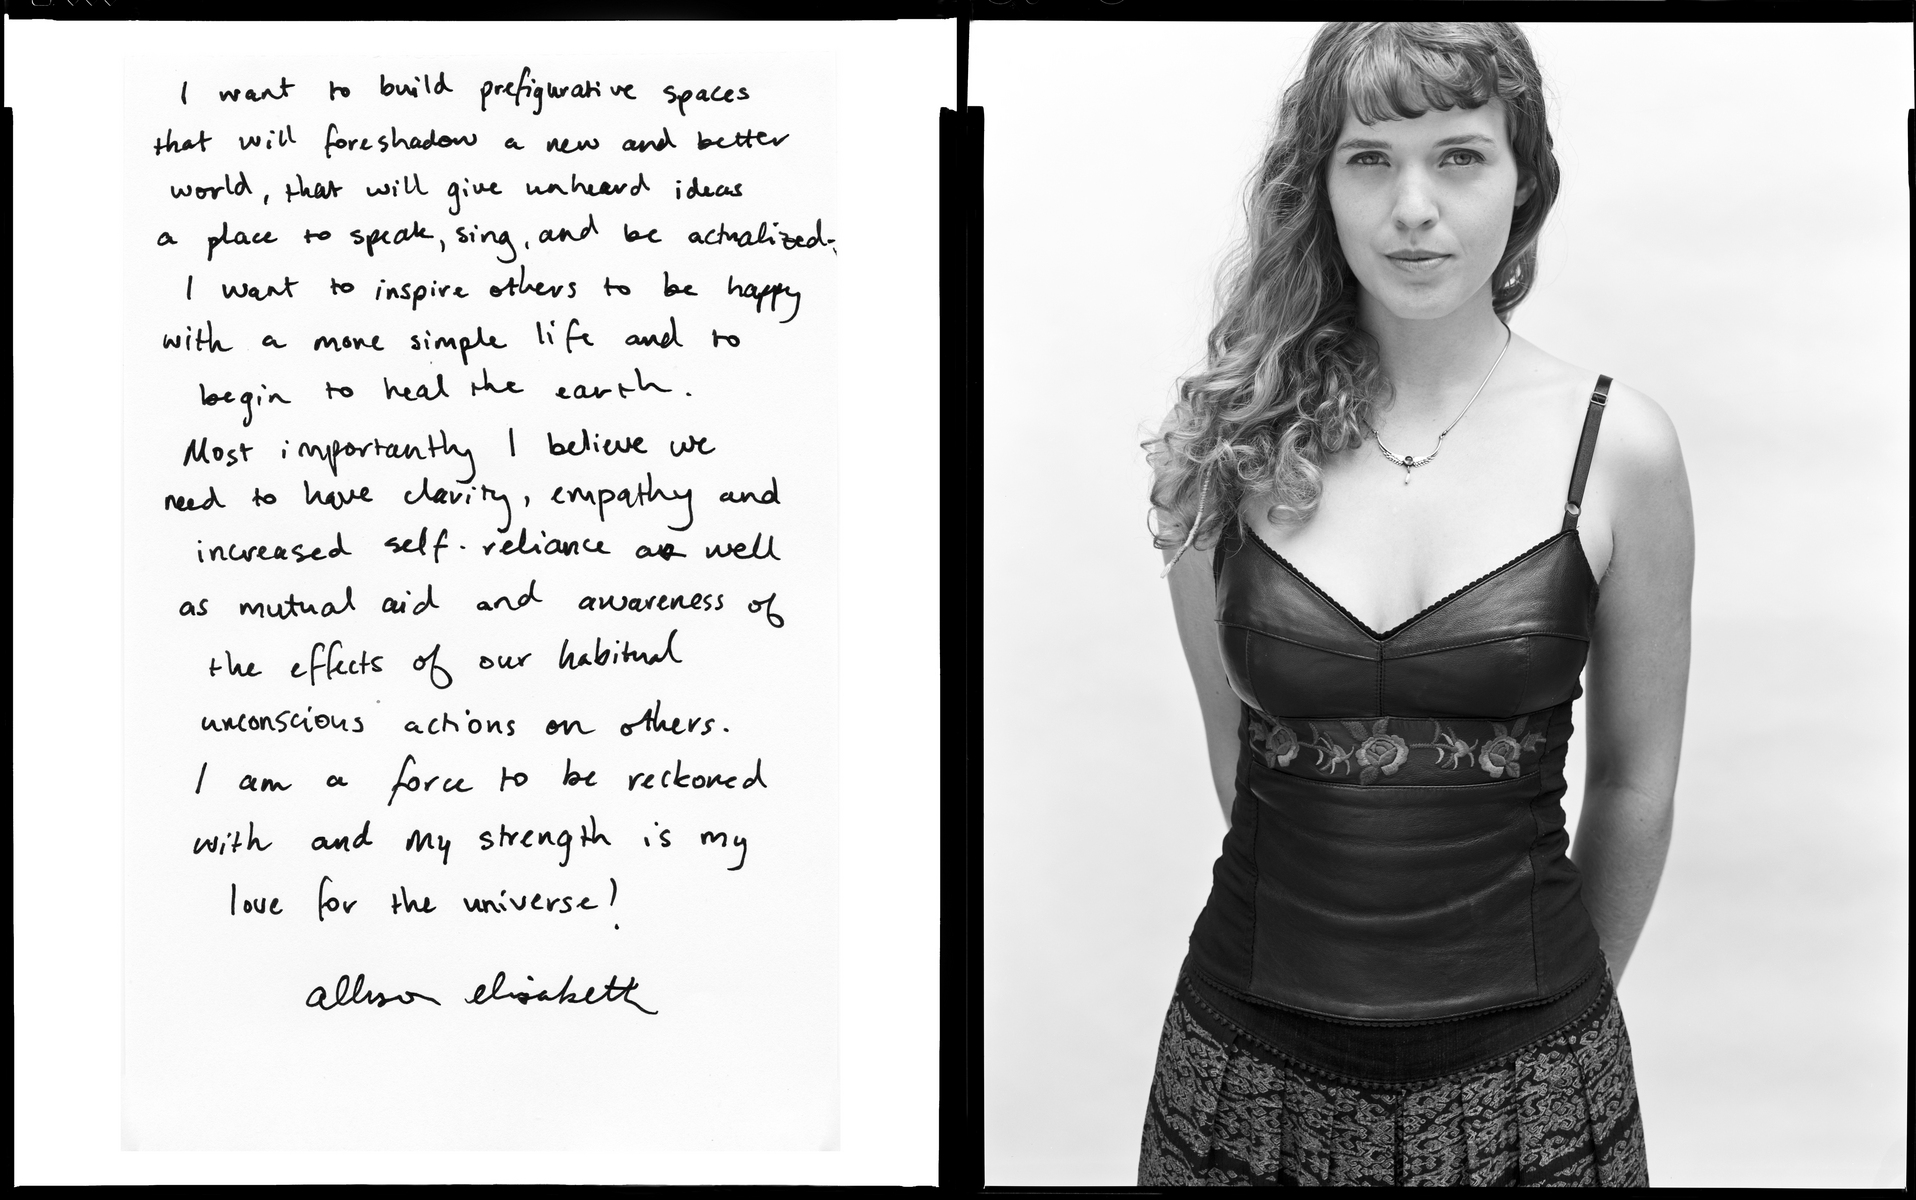 I want to build prefigurative spaces
that will foreshadow a new and better
world, that will give unheard ideas
a place to speak, sing, and be actualized.
I want to inspire others to be happy
with a more simple life and to
begin to heal the earth.
Most importantly I believe we
need to have clarity, empathy and
increased self-reliance as well
as mutual aid and awareness of
the effects of our habitual
unconscious actions on others.
I am a force to be reckoned
with and my strength is my
love for the universe!
allison elisabeth